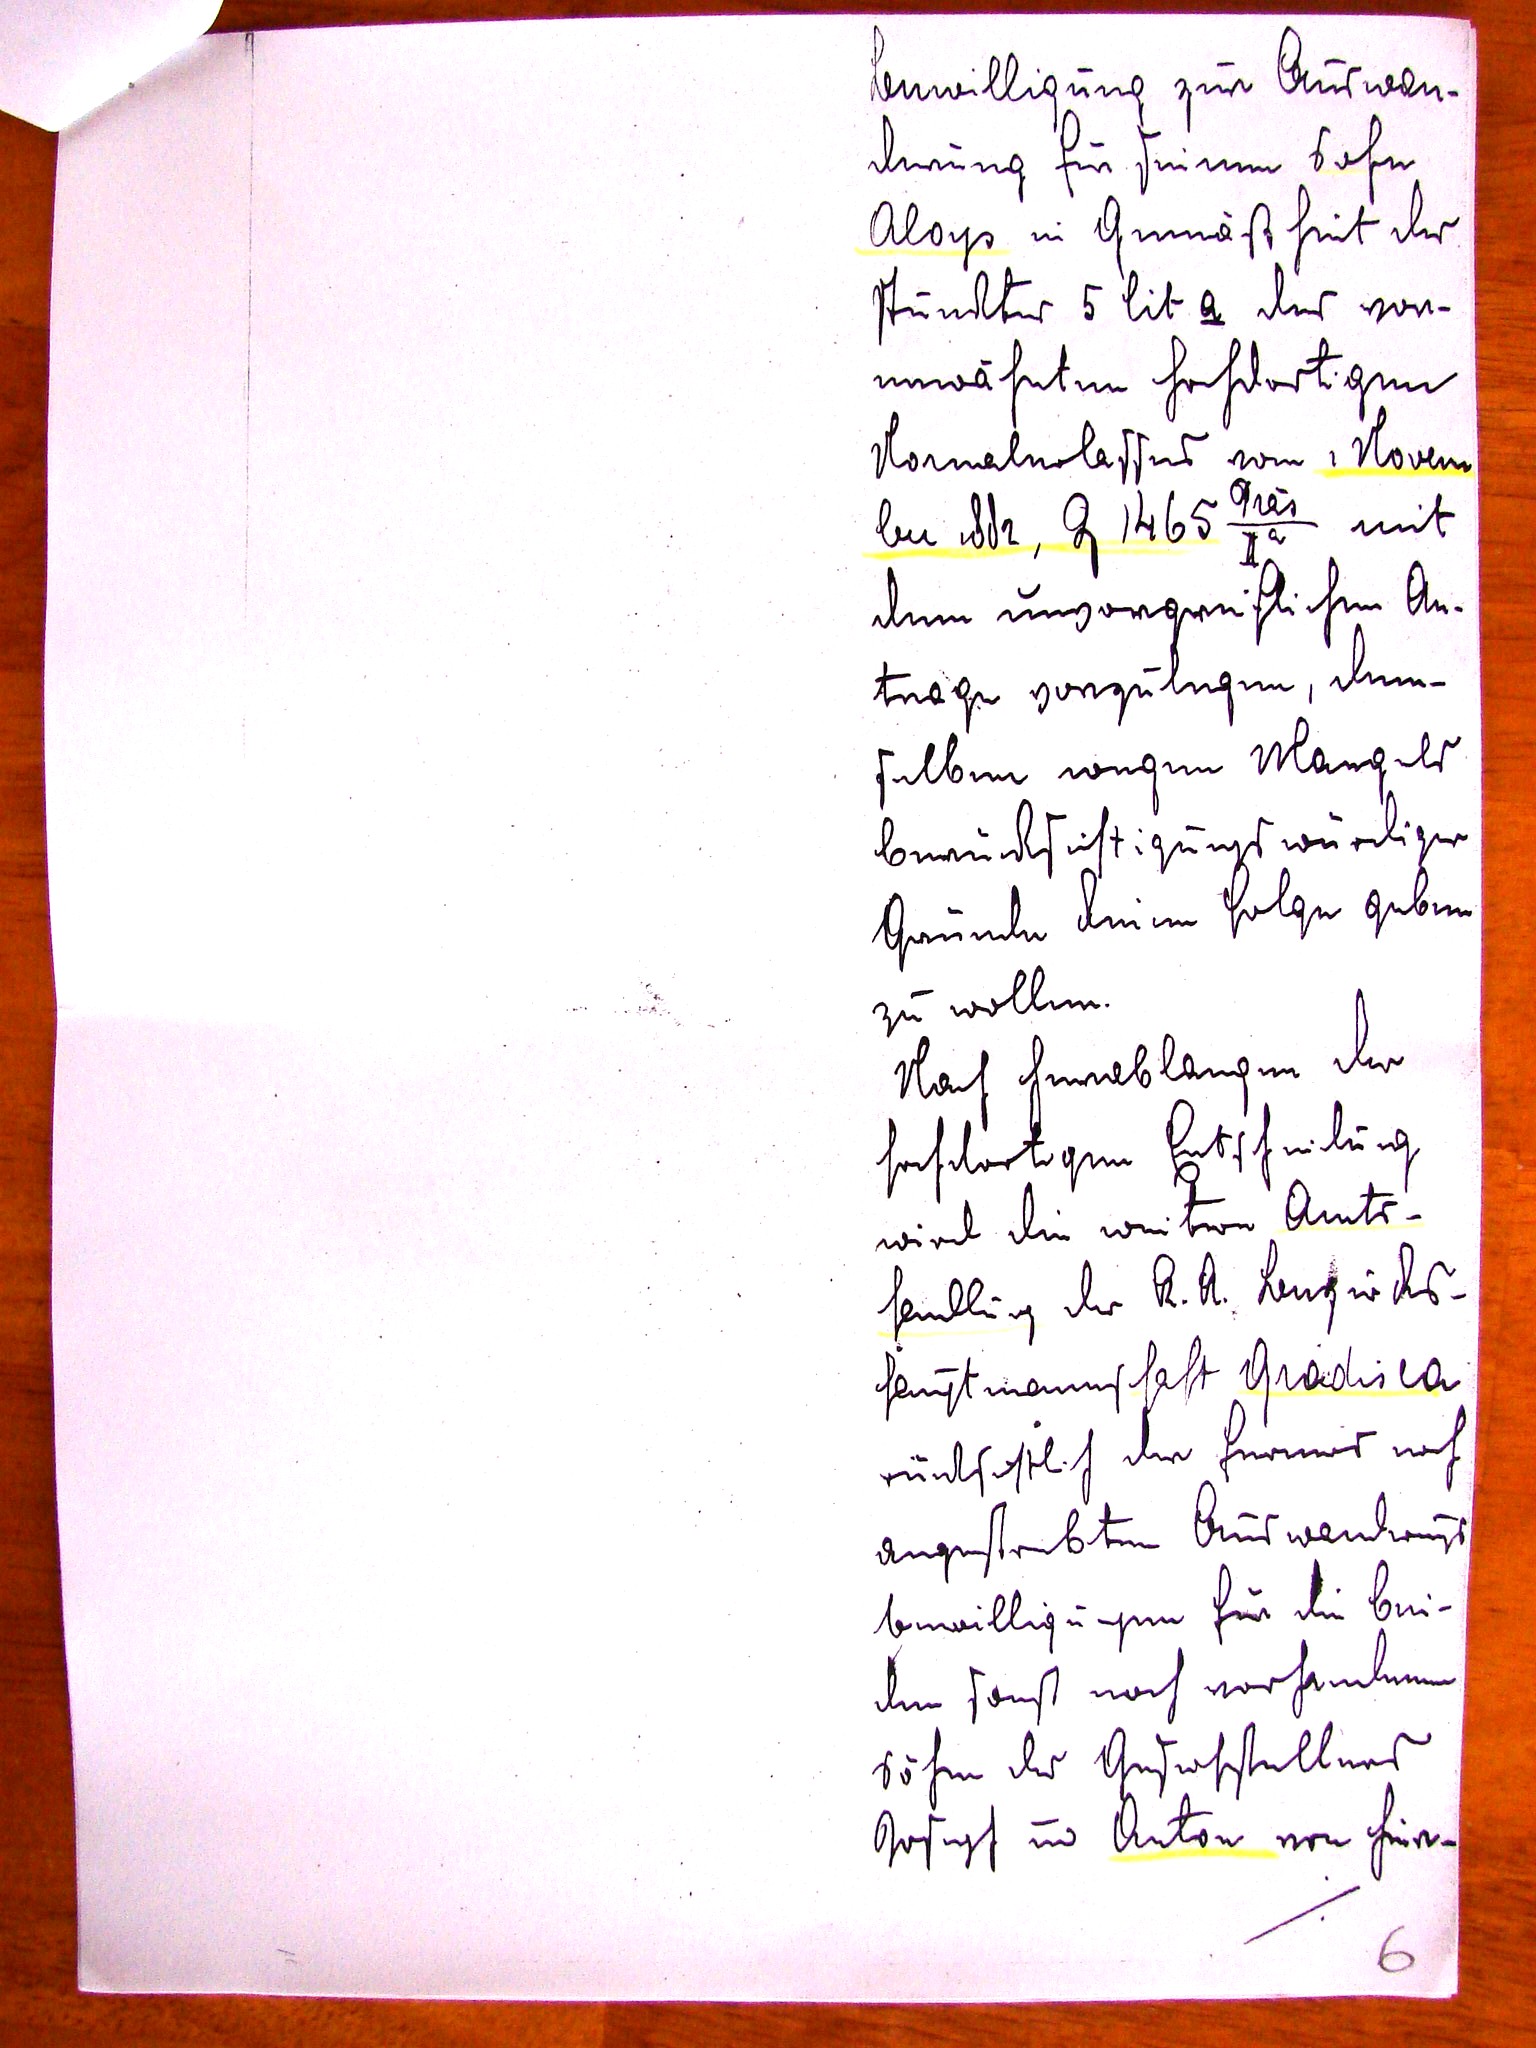 Bewilligung zur Auswan-
derung für seinen Sohn
Aloys in Gemäßheit des
Punktes 5 lit a des vor-
erwähnten hochdortigen
Normalerlasses vom 1 Novem
ber 1882, Z 1465 Präs/IIa mit
dem unvorgreiflichen An-
trage vorzulegen, dem-
selben wegen Mangels
berücksichtigungswürdiger
Gründe keine Folge geben
zu wollen.
Nach Herablangen der
hochdortigen Entscheidung
wird die weitere Amts-
handlung der K. K. Bezirks-
hauptmannschaft Gradisca
rücksichtlich der ferners noch
angestrebten Auswanderungs
bewilligungen für die bei-
den sonst noch vorhandenen
Söhne des Gesuchstellers
Josef und Anton von hier-
6